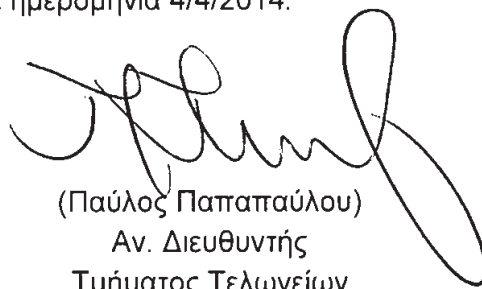 ημερομηνία 4/4/2014.
(Παύλος Παπαπαύλου)
Αν. Διευθυντής
Τμήματος Τελωνείων